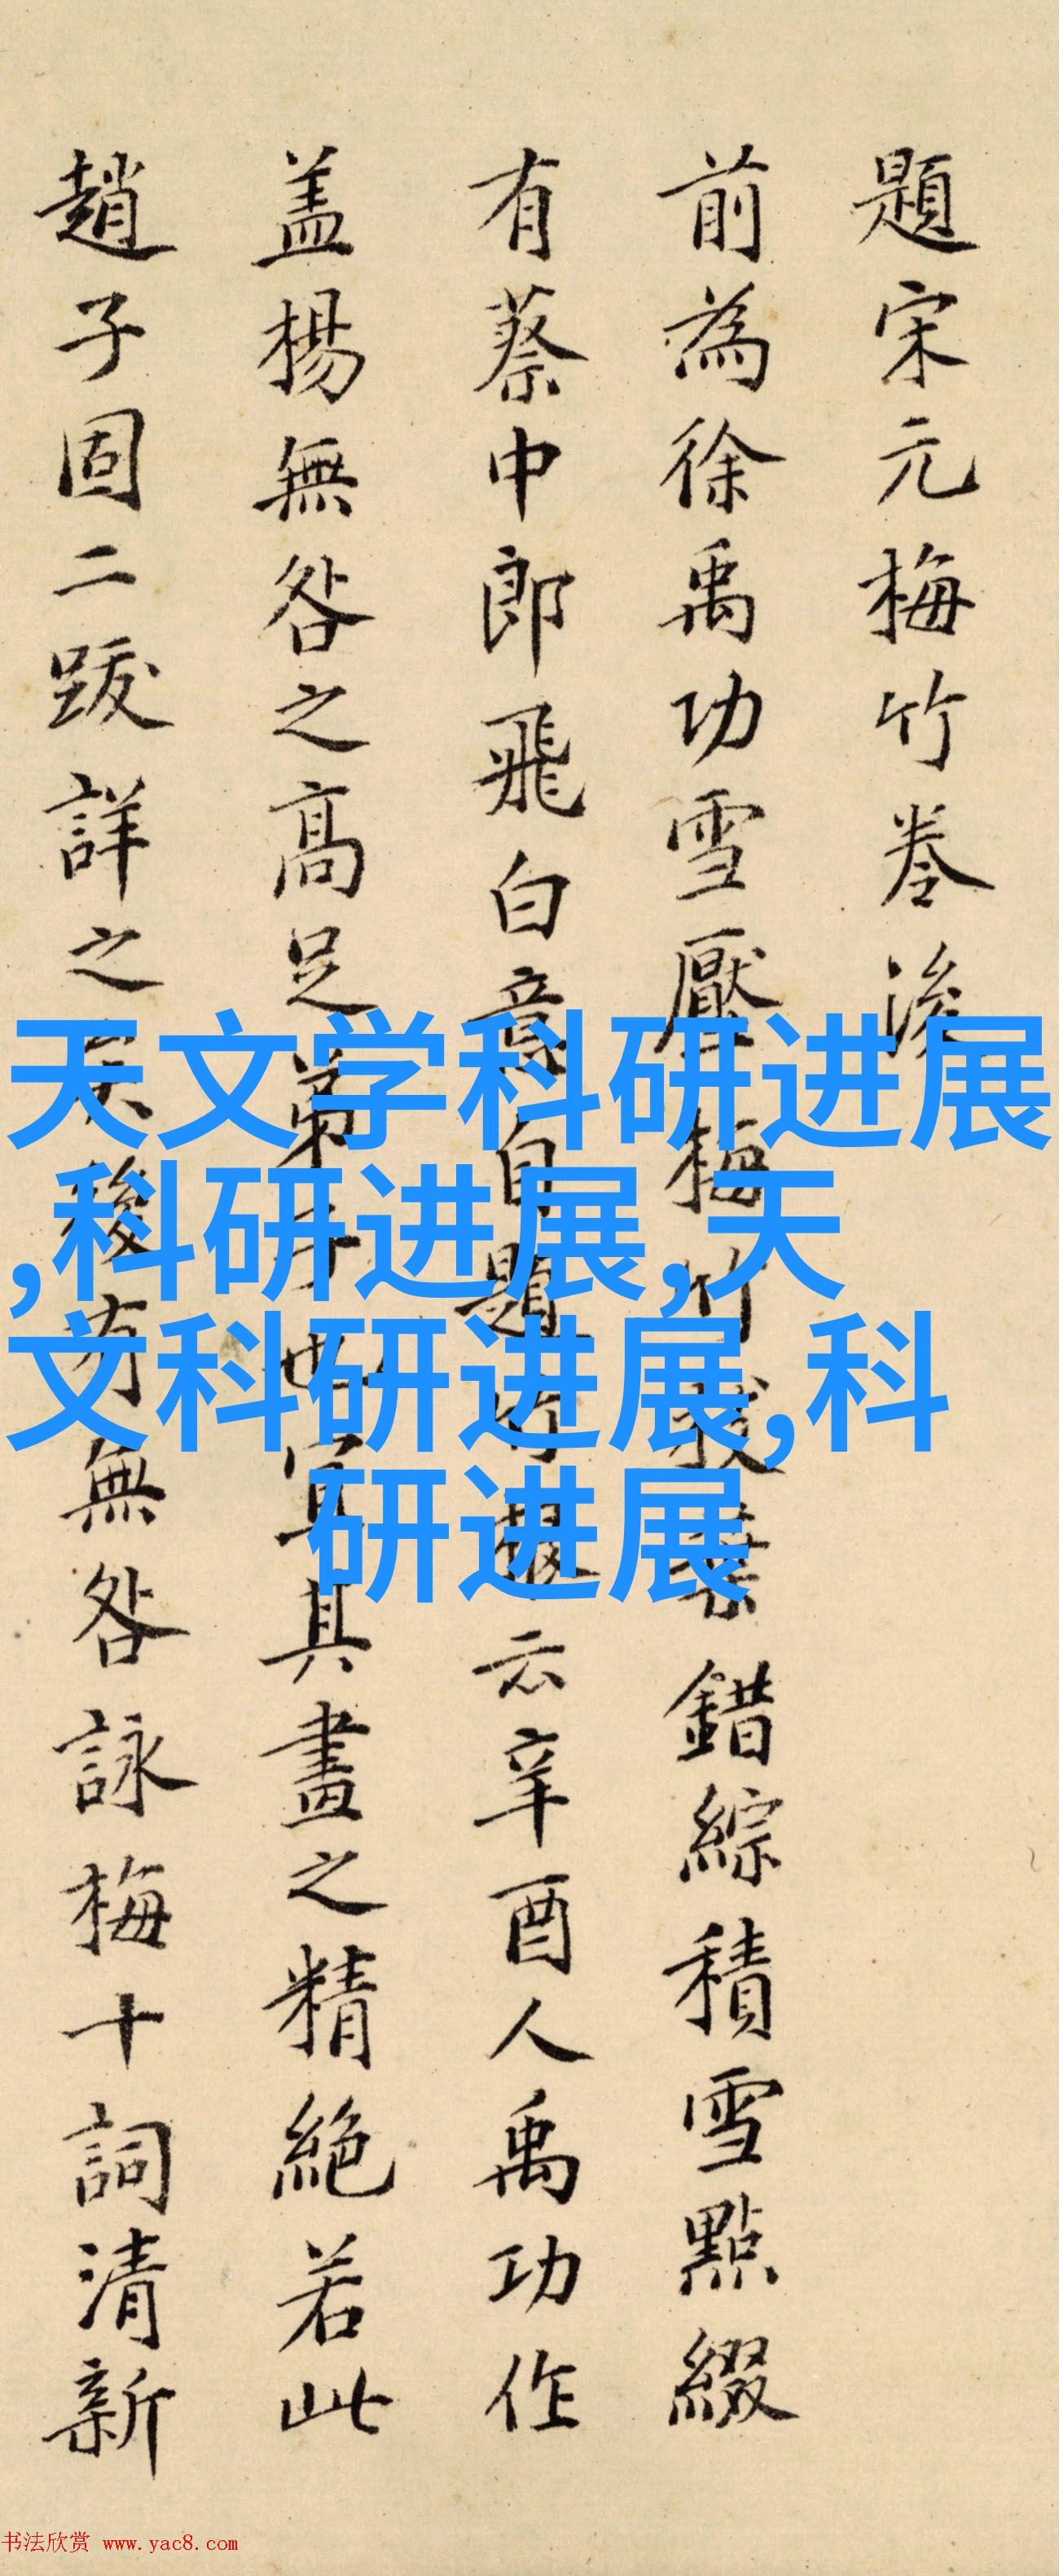 題宋元梅竹卷後
前為徐禹功雪壓梅竹錯綜積雪點綴
有蔡中郎飛白意自題云辛酉人禹功作
盖楊無咎之高足弟其畫之精絕若此
趙子固二跋詳之矣後有無咎詠梅十詞清新
天文学科研进展
,科研进展,天
文科研进展,科
研进展
书法欣赏 www.yac8.com